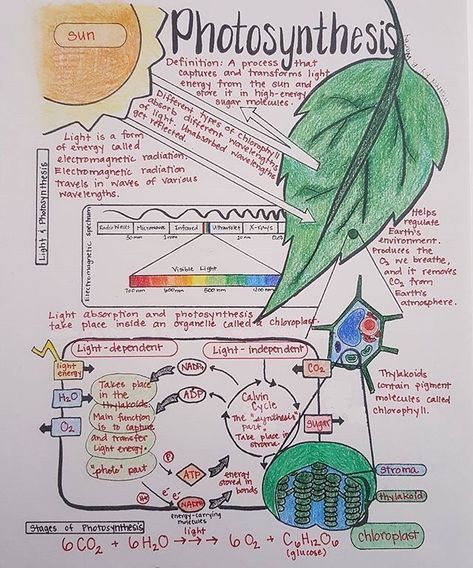 sun
Photosynthesis
Definition: A process that
captures and transforms light
energy from the sun and
store it in high-energy
sugar molecules.
Different types of chlorophyll
absorb different wavelengths
of light. Unabsorbed wavelengths
get reflected.
Light is a form
of energy called
electromagnetic radiation.
Electromagnetic radiation
travels in waves of various
wavelengths.
Light & Photosynthesis
Electromagnetic spectrum
Radio Waves Microwave Infrared Ultraviolet X-rays
Visible Light
700 nm
600 nm
500 nm
Helps
regulate
Earth's
environment.
Produces the
O2 we breathe,
and it removes
CO2 from
Earth's
atmosphere.
Light absorption and photosynthesis
take place inside an organelle called a chloroplast.
Light-dependent
Light-independent
light
energy
H2O
O2
Takes place
in the
thylakoids.
Main function
is to capture
and transfer
light energy.
"photo" part
NADP+
ADP
Calvin
Cycle
The "synthesis"
part.
Take place in
stroma.
CO2
sugar
Thylakoids
contain pigment
molecules called
chlorophyll.
P
ATP
energy
stored in
bonds
H+
e- e-
NADPH
energy-carrying
molecules
stroma
thylakoid
chloroplast
Stages of Photosynthesis
light
6CO2 + 6H2O →→→ 6O2 + C6H12O6
(glucose)